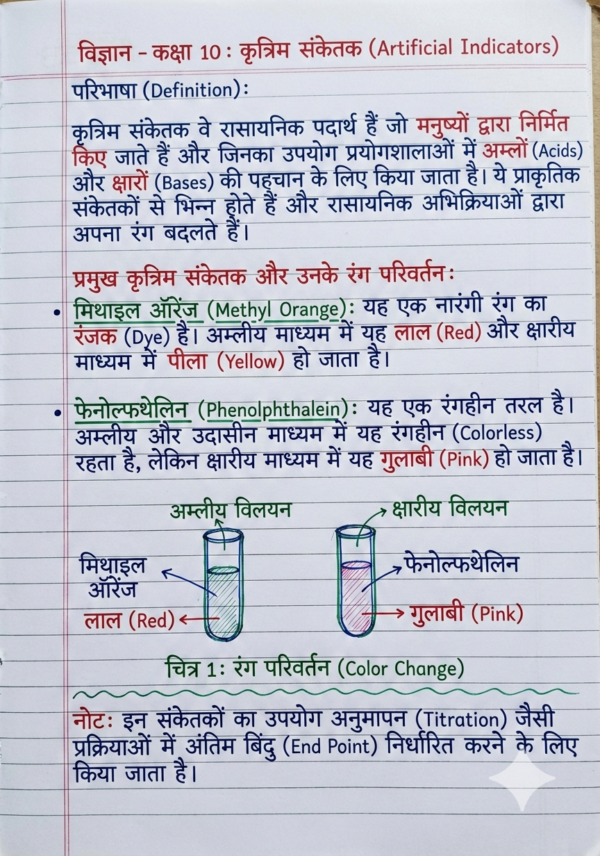 विज्ञान - कक्षा 10 : कृत्रिम संकेतक (Artificial Indicators)
परिभाषा (Definition):
कृत्रिम संकेतक वे रासायनिक पदार्थ हैं जो मनुष्यों द्वारा निर्मित
किए जाते हैं और जिनका उपयोग प्रयोगशालाओं में अम्लों (Acids)
और क्षारों (Bases) की पहचान के लिए किया जाता है। ये प्राकृतिक
संकेतकों से भिन्न होते हैं और रासायनिक अभिक्रियाओं द्वारा
अपना रंग बदलते हैं।
प्रमुख कृत्रिम संकेतक और उनके रंग परिवर्तन:
• मिथाइल ऑरेंज (Methyl Orange): यह एक नारंगी रंग का
रंजक (Dye) है। अम्लीय माध्यम में यह लाल (Red) और क्षारीय
माध्यम में पीला (Yellow) हो जाता है।
• फेनोल्फथेलिन (Phenolphthalein): यह एक रंगहीन तरल है।
अम्लीय और उदासीन माध्यम में यह रंगहीन (Colorless)
रहता है, लेकिन क्षारीय माध्यम में यह गुलाबी (Pink) हो जाता है।
अम्लीय विलयन
क्षारीय विलयन
मिथाइल
ऑरेंज
फेनोल्फथेलिन
लाल (Red)
गुलाबी (Pink)
चित्र 1: रंग परिवर्तन (Color Change)
नोट: इन संकेतकों का उपयोग अनुमापन (Titration) जैसी
प्रक्रियाओं में अंतिम बिंदु (End Point) निर्धारित करने के लिए
किया जाता है।